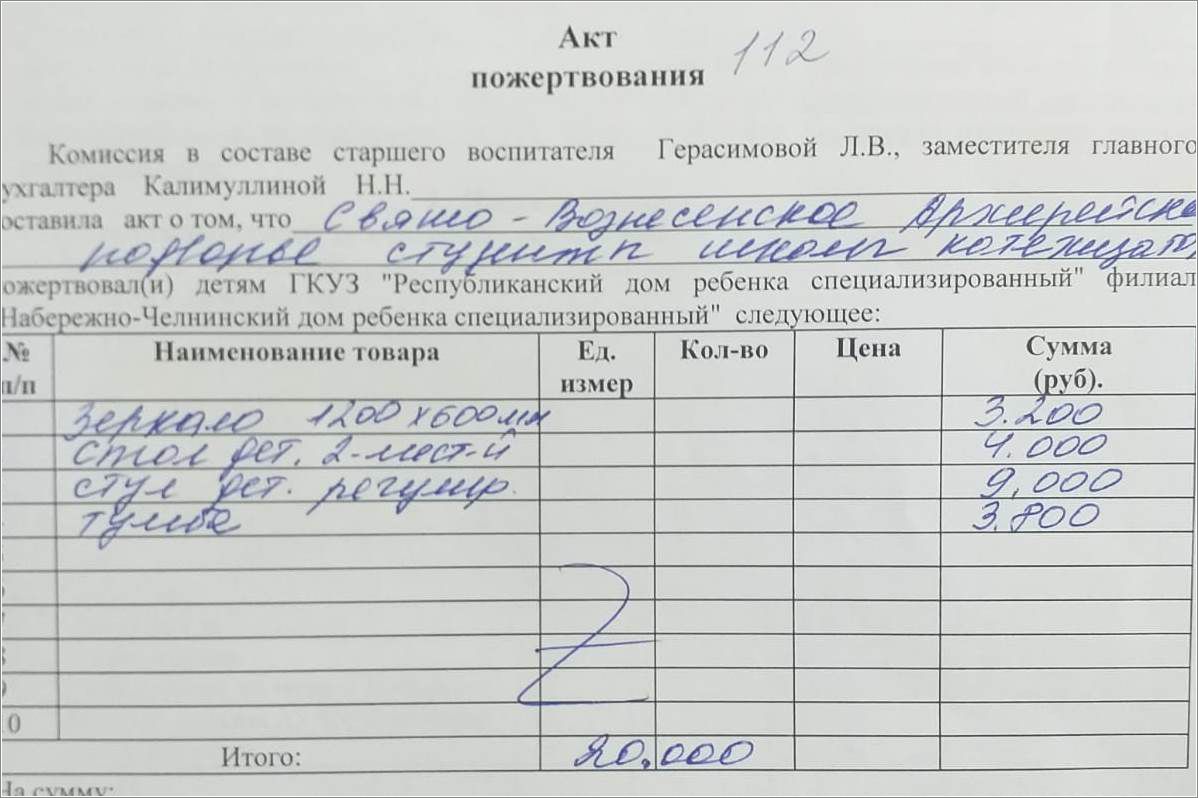 Акт 112
пожертвования
Комиссия в составе старшего воспитателя Герасимовой Л.В., заместителя главного
ухгалтера Калимуллиной Н.Н.
оставила акт о том, что Свято - Вознесенское Архиерейско
подворье студенты школы
ожертвовал(и) детям ГКУЗ "Республиканский дом ребенка специализированный" филиал
Набережно-Челнинский дом ребенка специализированный" следующее:
№ п/п Наименование товара Ед. измер Кол-во Цена Сумма (руб).
Зеркало 1200х600мм 3.200
Стол дет. 2-мест-й 4.000
стул дет. регулир. 9,000
тумба 3.800
10
Итого: 20.000
На сумму: